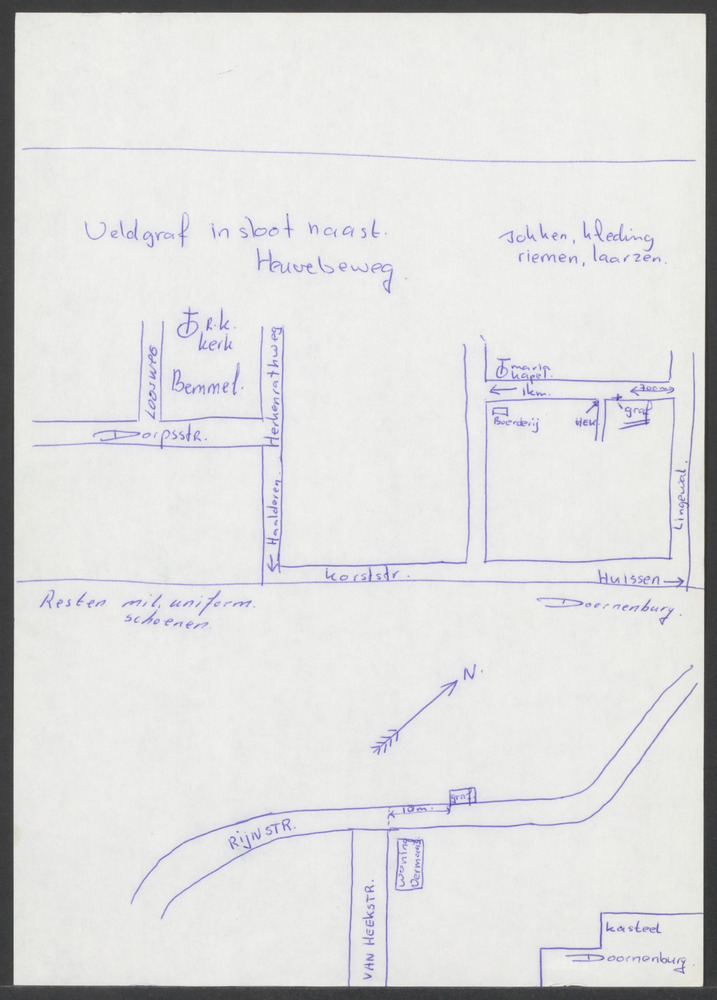 Veldgraf in sloot naast.
Heuvelseweg.
sokken, kleding
riemen, laarzen.
R.k.
kerk
Bemmel.
LOOWEG
Dorpsstr.
Herkenrathweg
Haalderen
karststr.
maria
kapel.
1km.
200m
Boerderij
HEK.
graf
Lingewal.
Huissen
Resten mil. uniform.
schoenen.
Doornenburg.
N.
graf
10m.
RIJNSTR.
woning
Vermaas
VAN HEEKSTR.
kasteel
Doornenburg.